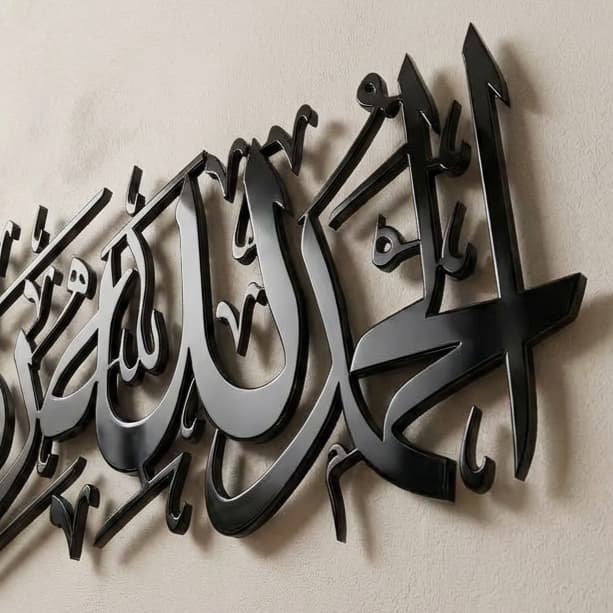 الحمد لله ر